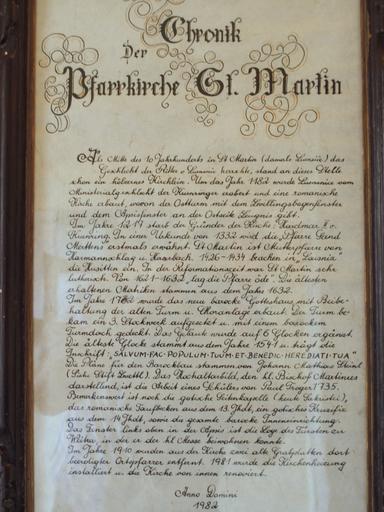 Chronik
Der
Pfarrkirche St. Martin
Als Mitte des 10. Jahrhunderts in St. Martin (damals Lainsitz) das
Geschlecht der Ritter v. herrschte, stand an dieser Stelle
schon ein hölzernes Kirchlein. Um das Jahr wurde vom
Ministerialgeschlecht der Kuenringer erobert und eine romanische
Kirche erbaut, wovon der Ostturm mit dem Zwillingsbogenfenster
und dem Speisfenster an der Ostseite Zeugnis gibt.
Im Jahre starb der Gründer der Kirche: Hadmar v.
Kuenring. In einer Urkunde von 1332 wird die Pfarre Send
Mertten erstmals erwähnt. St. Martin ist Mutterpfarre von
Harmannschlag u. 1426-1434 brachen in "Lainsia"
die Hussitten ein. In der Reformationszeit war St. Martin sehr
lutherisch. Von 1621-1632 "lag die Pfarre öde". Die ältesten
erhaltenen Matriken stammen aus dem Jahre 1632.
Im Jahre wurde das neue barocke Gotteshaus mit Beibe-
haltung der alten Turm u. Choranlage erbaut. Der Turm be-
kam ein 3. Stockwerk aufgesetzt u. mit einem barockem
Turmdach gedeckt. Das Geläute wurde auf 6 Glocken ergänzt.
Die älteste Glocke stammt aus dem Jahre 1541 u. trägt die
Inschrift: "SALVUM·FAC·POPULUM·TUUM·ET·BENEDIC·HEREDIATI·TUA"
Die Pläne für den Barockbau stammen von Johann Mathias
Das Hochaltarbild, den hl. Bischof Martinus
darstellend, ist die Arbeit eines Schülers von Paul Troger 1735.
Bemerkenswert ist noch die gotische Seitenkapelle (heute Sakristei),
das romanische Taufbecken aus dem 13. Jhdt, ein gotisches Kruzifix
aus dem Jhdt, sowie die gesamte barocke Inneneinrichtung.
Das Fenster links oben in der Apsis ist die Loge des Fürsten zu
Weitra, in der er der hl. Messe beiwohnen konnte.
Im Jahre 1910 wurden aus der Kirche zwei alte Grabplatten dort
beerdigter Ortspfarrer entfernt. 1981 wurde die Kirchenheizung
installiert u. die Kirche von innen renoviert.
Anno Domini
1982